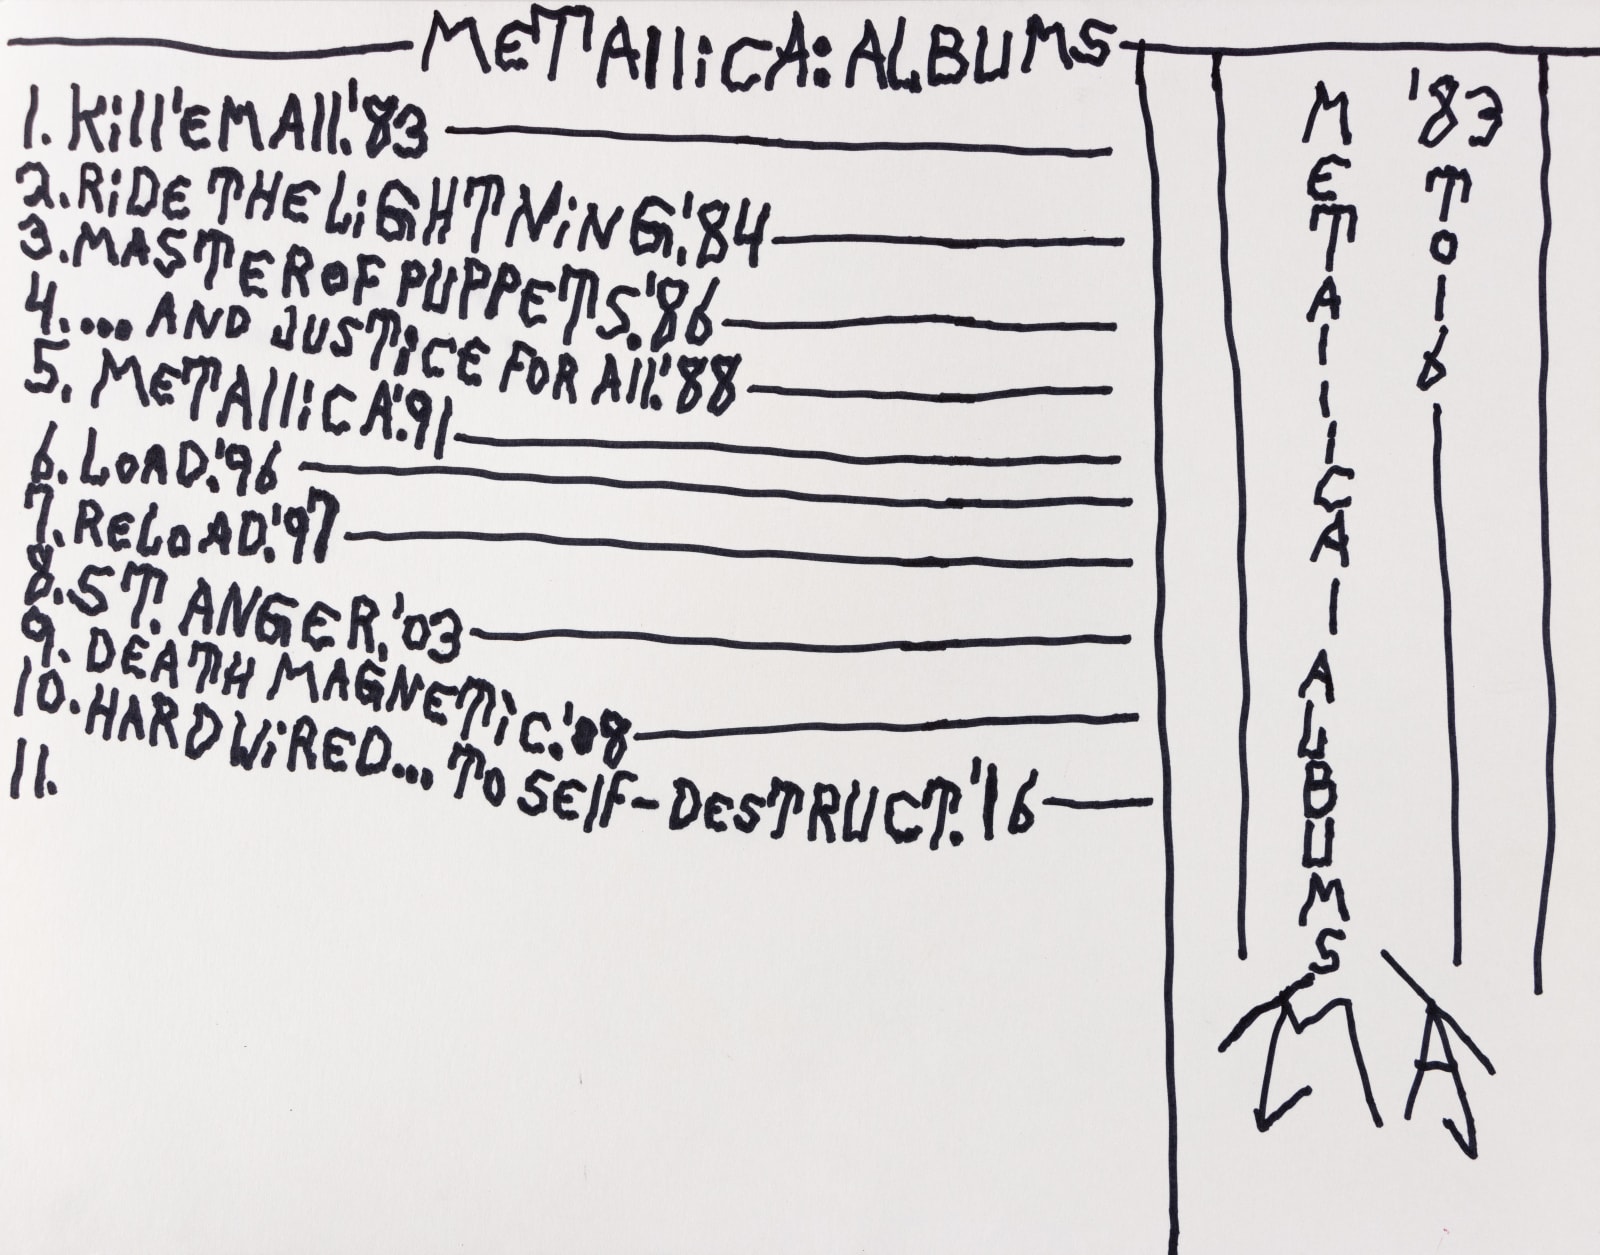 METAlliCA: ALBUMS
1. Kill 'EM All. '83
2. RiDE THE LiGHTNiNG. '84
3. MASTER OF PUPPETS. '86
4. .... AND JUSTiCE FOR All. '88
5. METAlliCA. '91
6. LOAD. '96
7. RELOAD. '97
8. ST. ANGER. '03
9. DEATH MAGNETiC. '08
10. HARDWiRED... TO SElF-DESTRUCT. '16
11.
METAllICA | ALBUMS
'83 TO 16
M A